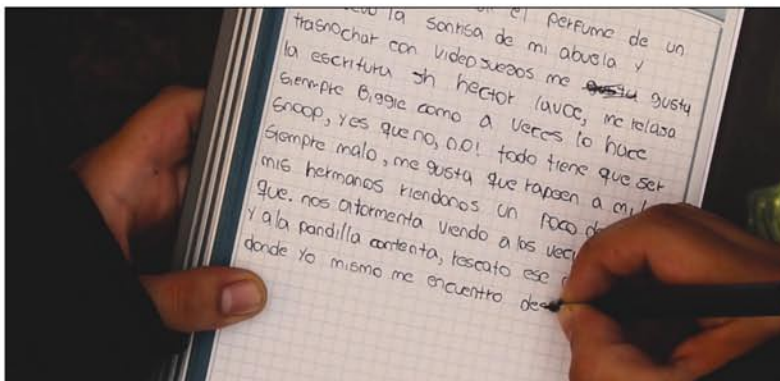 la sonrisa el perfume de un
de mi abuela y
trasnochar con videojuegos me gusta gusta
la escritura oh hector lavoe, me relaja
siempre Biggie como a veces lo hace
Snoop, yes que no, no! todo tiene que ser
siempre malo, me gusta que rapeen a mi
mis hermanos riendonos un poco de
que. nos atormenta viendo a los
y a la pandilla contenta, rescato ese
donde yo mismo me encuentro de